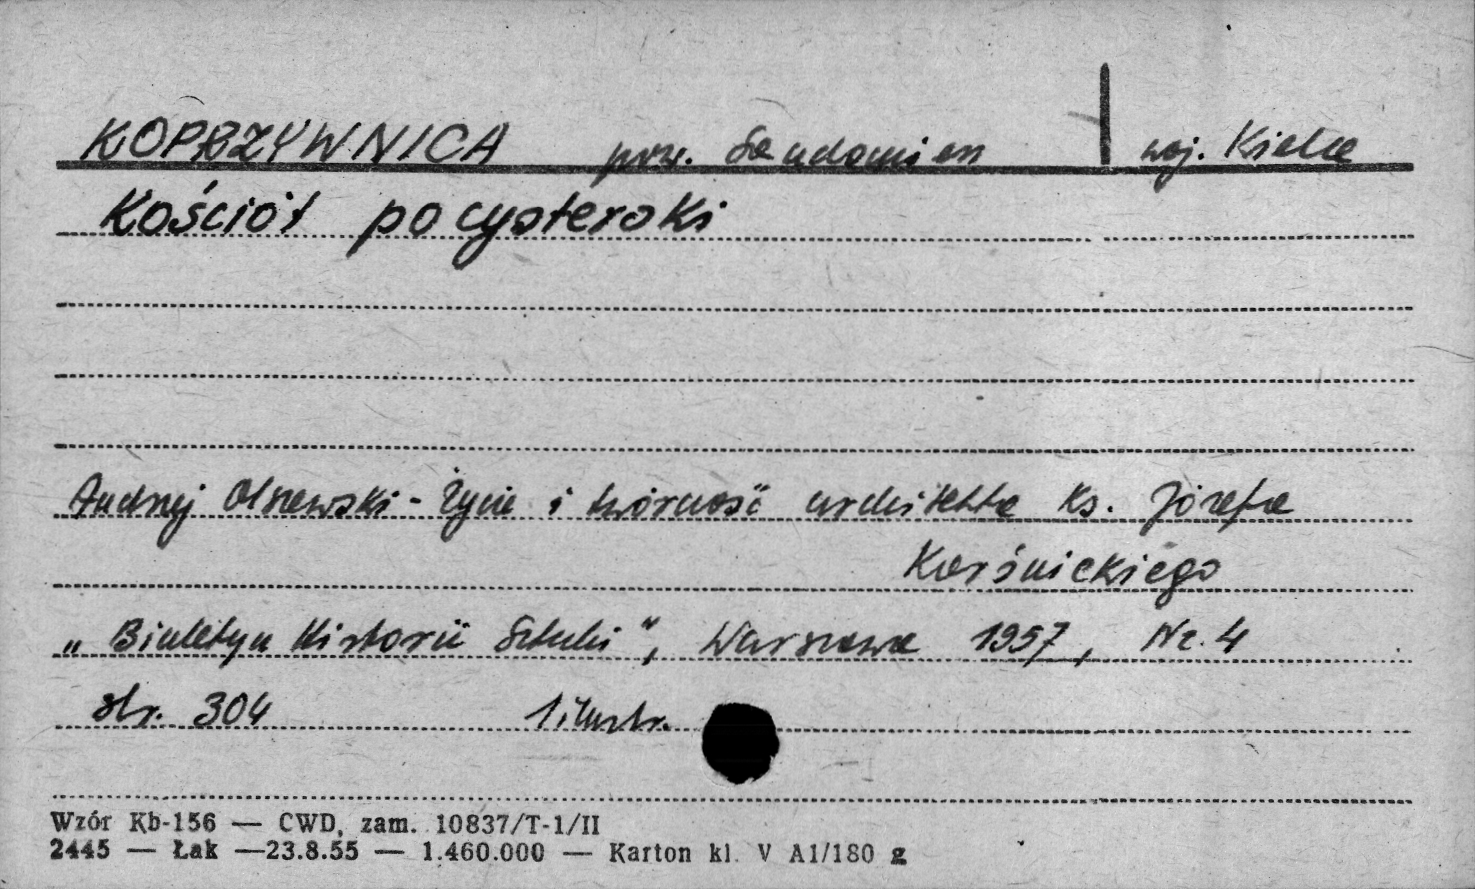 KOPRZYWNICA pow. Sandomierz woj. Kielce
Kościół pocysterski
Andrzej Olszewski - Życie i twórczość architekta Ks. Józefa
Karśnickiego
„Biuletyn Historii Sztuki", Warszawa 1957, Nr. 4
str. 304 1 ilustr.
Wzór Kb-156 — CWD, zam. 10837/T-1/II
2445 — Łak —23.8.55 — 1.460.000 — Karton kl. V A1/180 g